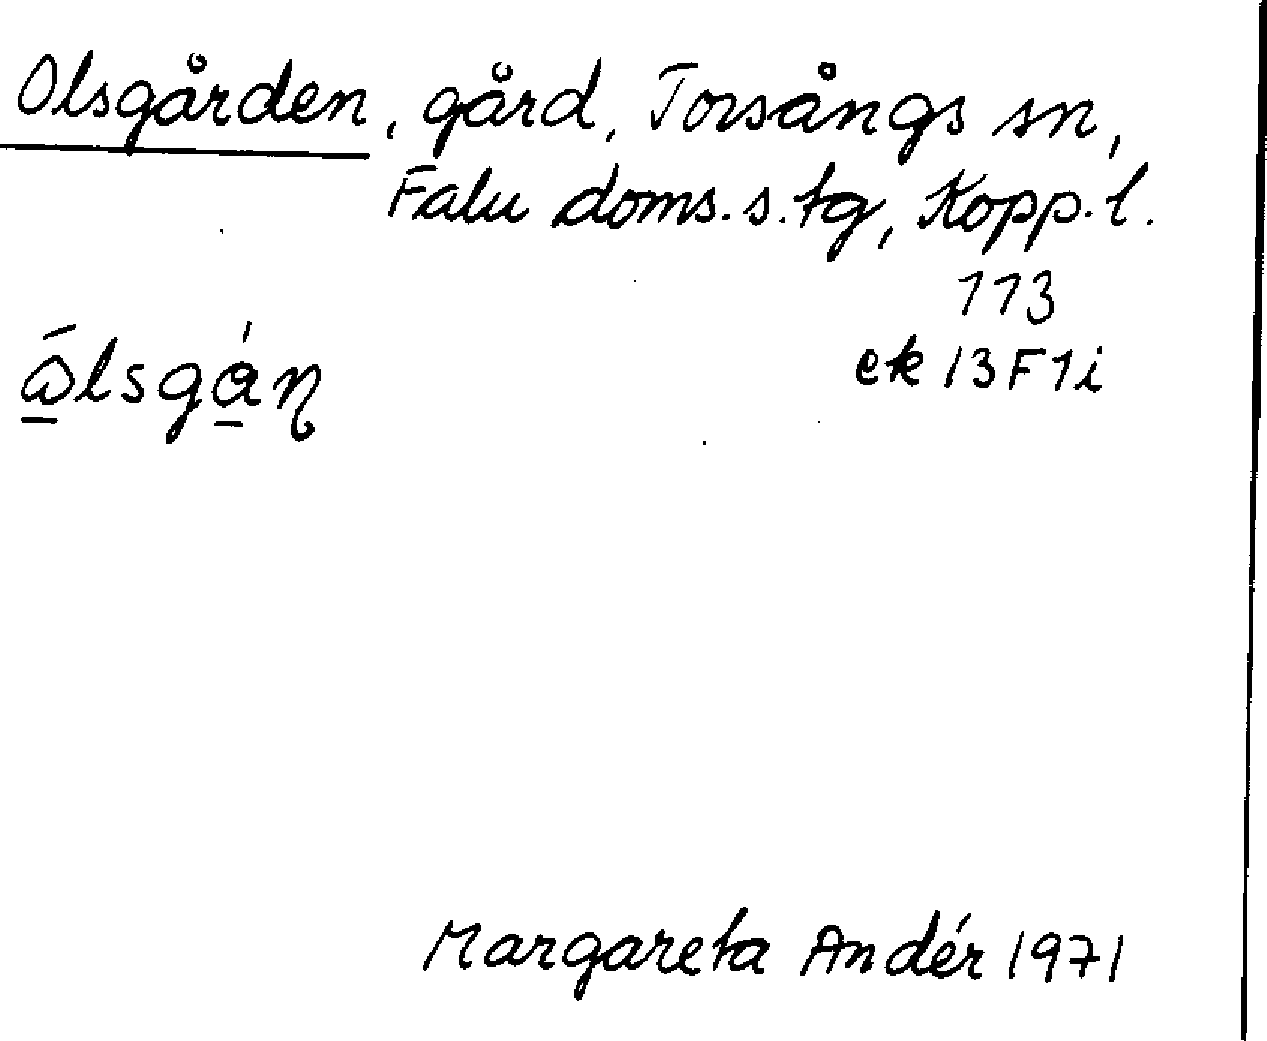 Olsgården, gård, Torsångs sn,
Falu doms.s.tg, Kopp.l.
113
ek 13F1i
ω̱̄lsgá̱ɳ
Margareta Andér 1971